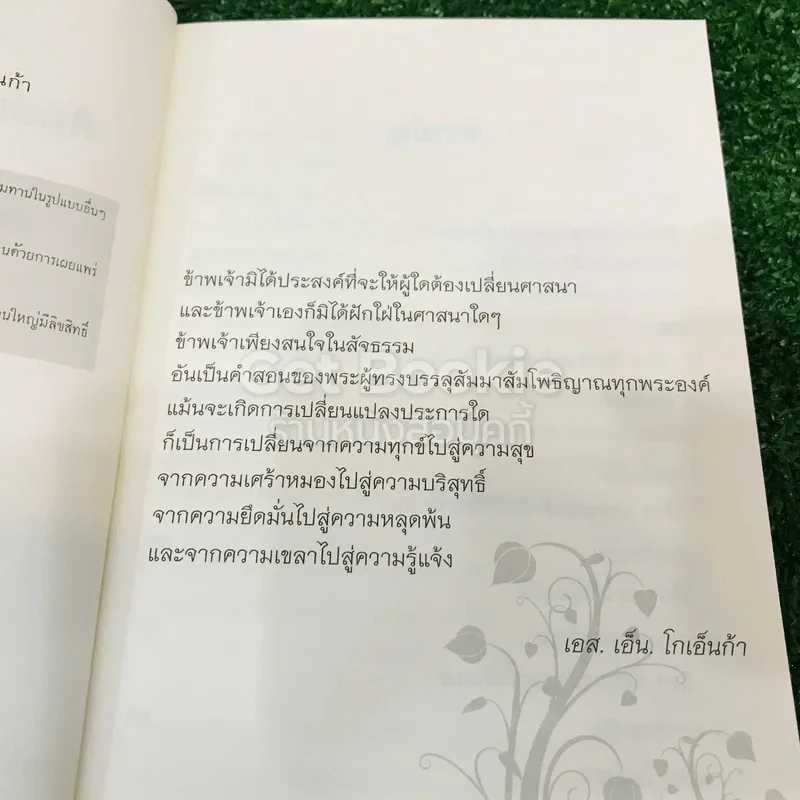 นก้า
มทานในรูปแบบอื่นๆ
นด้วยการเผยแพร่
นใหญ่มีลิขสิทธิ์
ข้าพเจ้ามิได้ประสงค์ที่จะให้ผู้ใดต้องเปลี่ยนศาสนา
และข้าพเจ้าเองก็มิได้ฝักใฝ่ในศาสนาใดๆ
ข้าพเจ้าเพียงสนใจในสัจธรรม
อันเป็นคำสอนของพระผู้ทรงบรรลุสัมมาสัมโพธิญาณทุกพระองค์
แม้นจะเกิดการเปลี่ยนแปลงประการใด
ก็เป็นการเปลี่ยนจากความทุกข์ไปสู่ความสุข
จากความเศร้าหมองไปสู่ความบริสุทธิ์
จากความยึดมั่นไปสู่ความหลุดพ้น
และจากความเขลาไปสู่ความรู้แจ้ง
เอส. เอ็น. โกเอ็นก้า
Get Bookie
ร้านหนังสือบุ๊คกี้